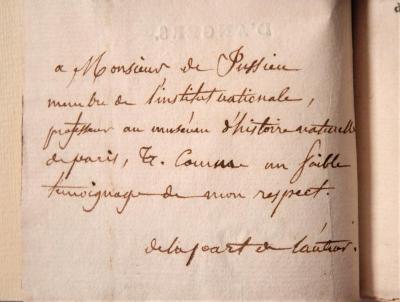 D'ANGERS,
a Monsieur de Jussieu
membre de l'institut nationale,
professeur au muséum d'histoire naturelle
de paris, &c. Comme un faible
témoignage de mon respect.
de la part de l'auteur.